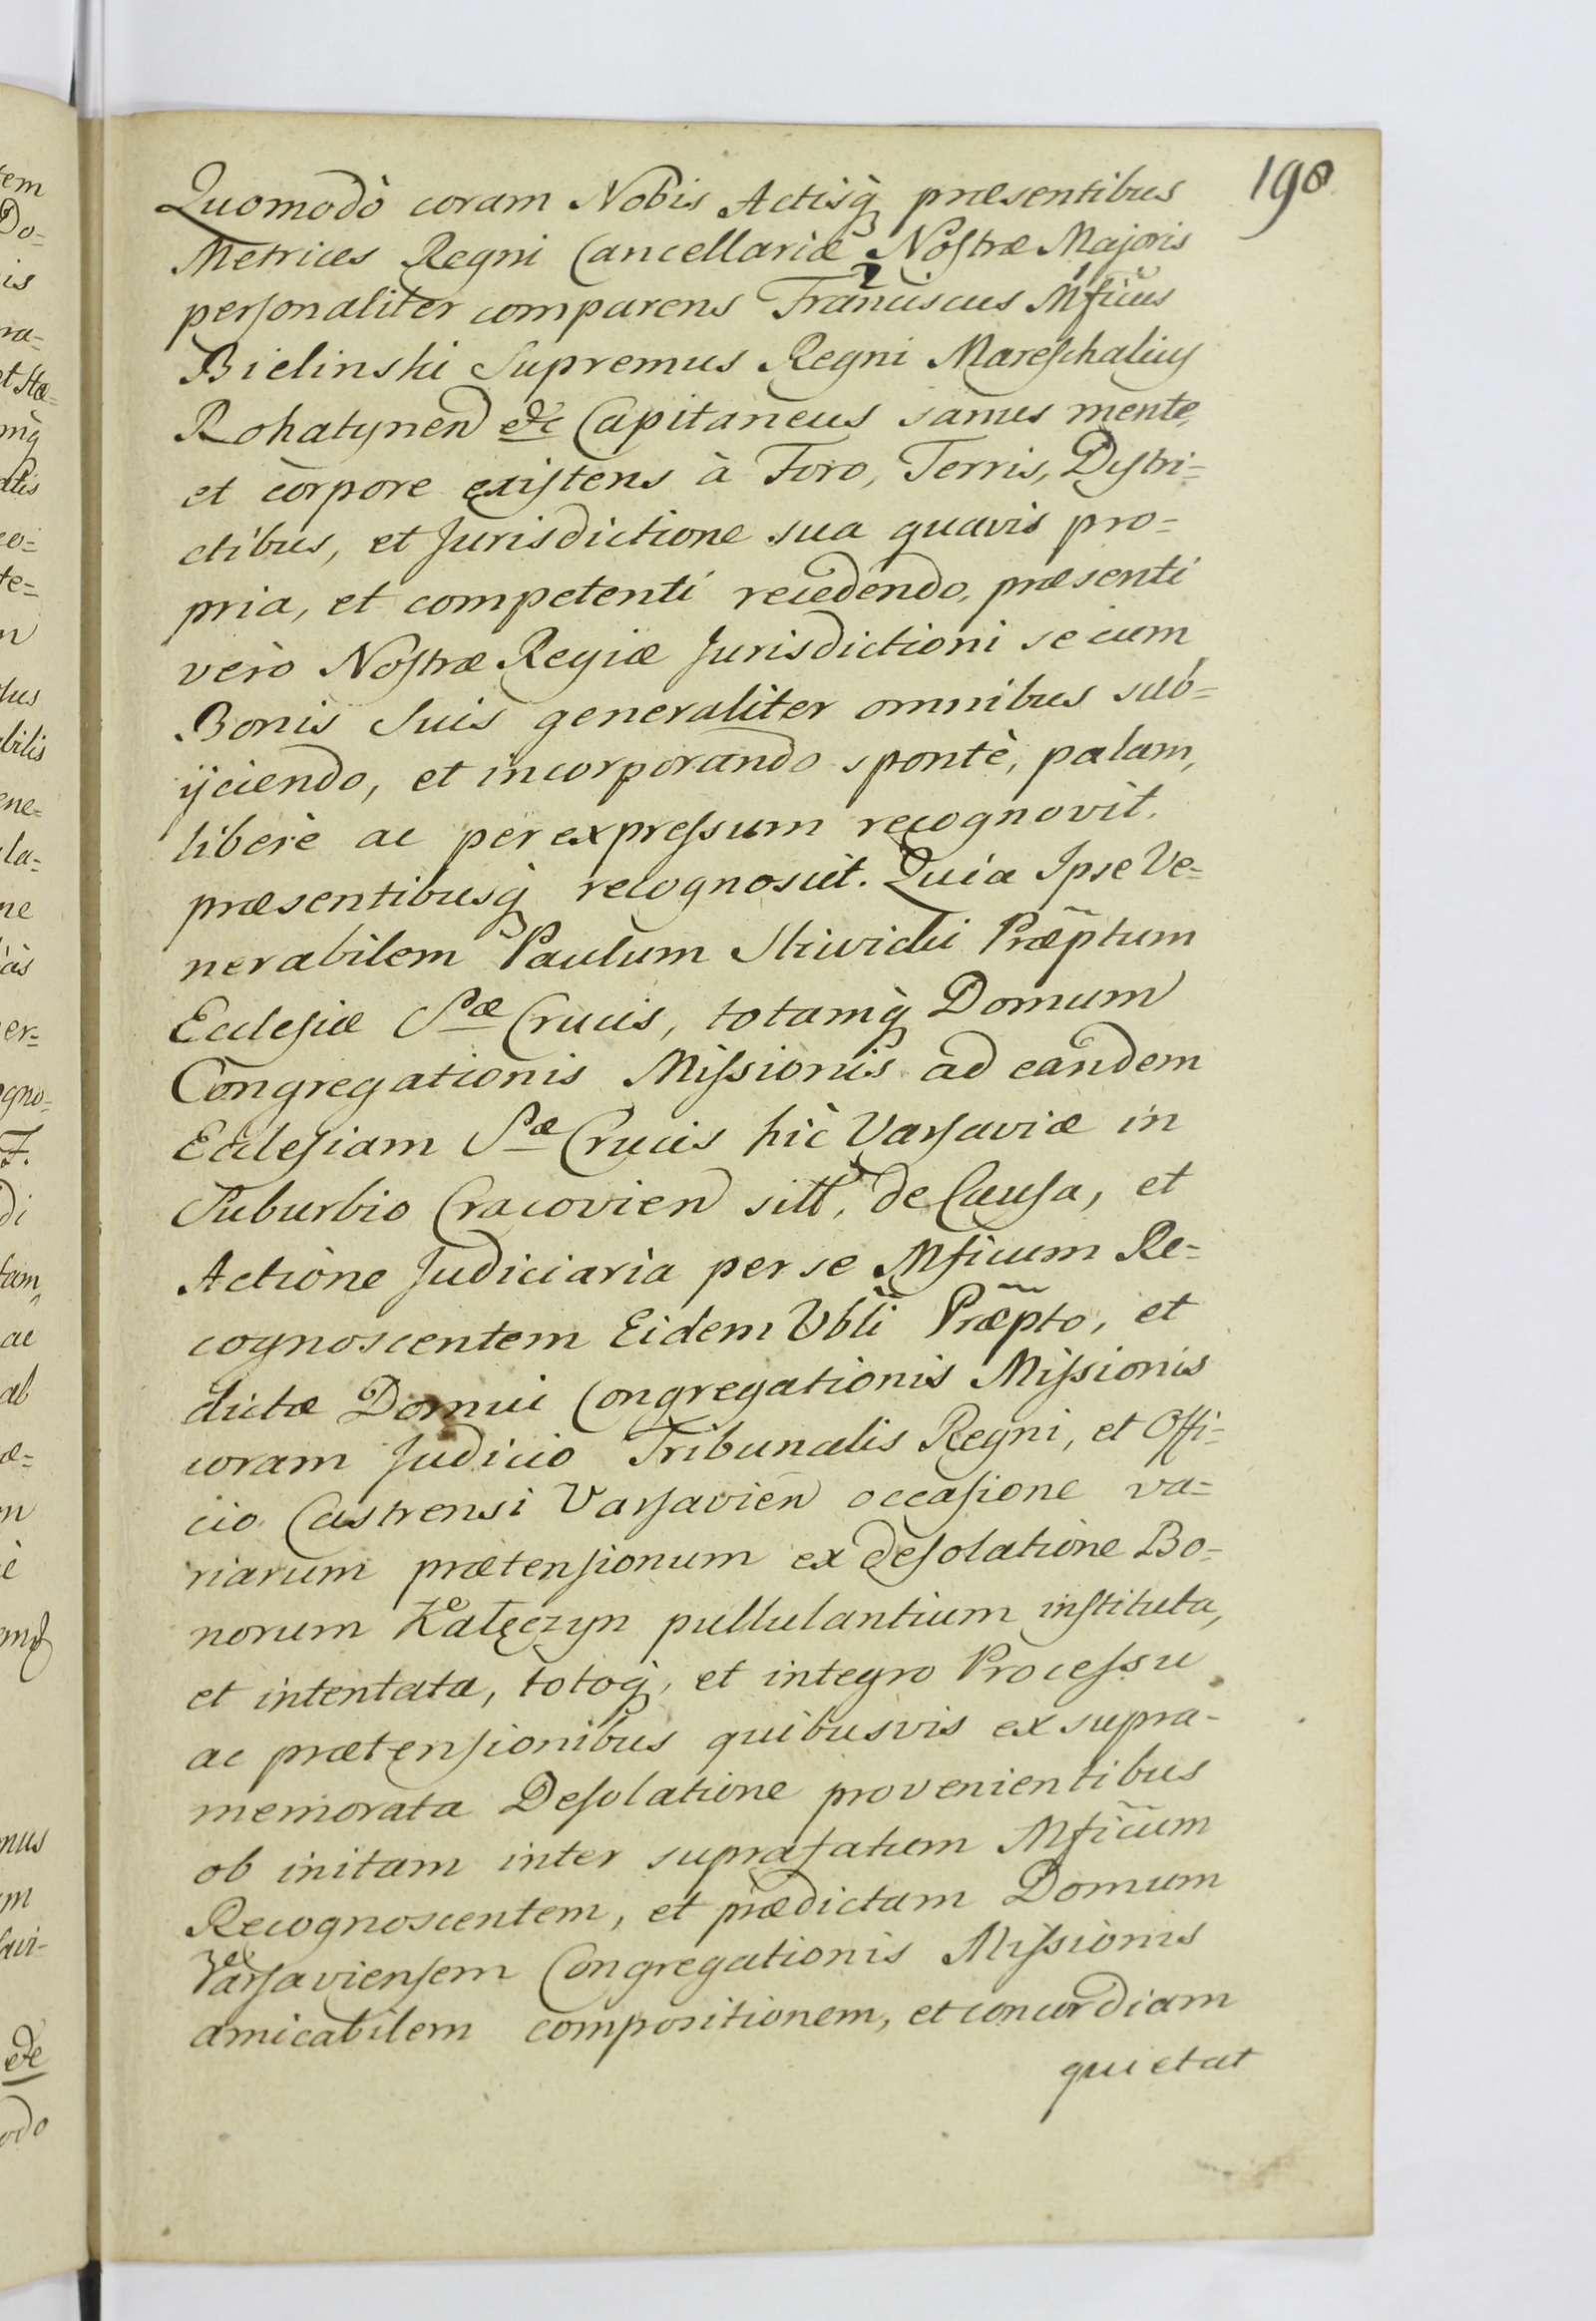 198
Quomodò coram Nobis Actisq̀ præsentibus
Metrices Regni Cancellariæ Nostræ Majoris
personaliter comparens Franciscus Mficus
Bielinski Supremus Regni Mareschalius
Rohatynen etc Capitaneus sanus mente,
et corpore existens à Foro, Terris, Distri=
ctibus, et Jurisdictione sua quavis pro=
pria, et competenti recedendo, præsenti
verò Nostræ Regiæ Jurisdictioni se cum
Bonis Suis generaliter omnibus sub=
ijciendo, et incorporando spontè, palam,
liberè ac per expressum recognovit.
præsentibusq̀ recognoscit. Quia Ipse Ve=
nerabilem Paulum Præptum
Ecclesiæ Stæ Crucis, totamq̀ Domum
Congregationis Missionis ad eandem
Ecclesiam Stæ Crucis hìc Varsaviæ in
Suburbio Cracovien sitt, de Causa, et
Actione Judiciaria per se Mficum Re=
cognoscentem Eidem Vbli Præpto, et
dictæ Domui Congregationis Missionis
coram Judicio Tribunalis Regni, et Offi=
cio Castrensi Varsavien occasione va=
riarum prætensionum ex desolatione Bo=
norum Kałęczyn pullulantium instituta,
et intentata, totoq̀, et integro Processu
ac prætensionibus quibusvis ex supra=
memorata Desolatione provenientibus
ob initam inter suprafatum Mficum
Recognoscentem, et prædictam Domum
Varsaviensem Congregationis Missionis
amicabilem compositionem, et concordiam
quietat